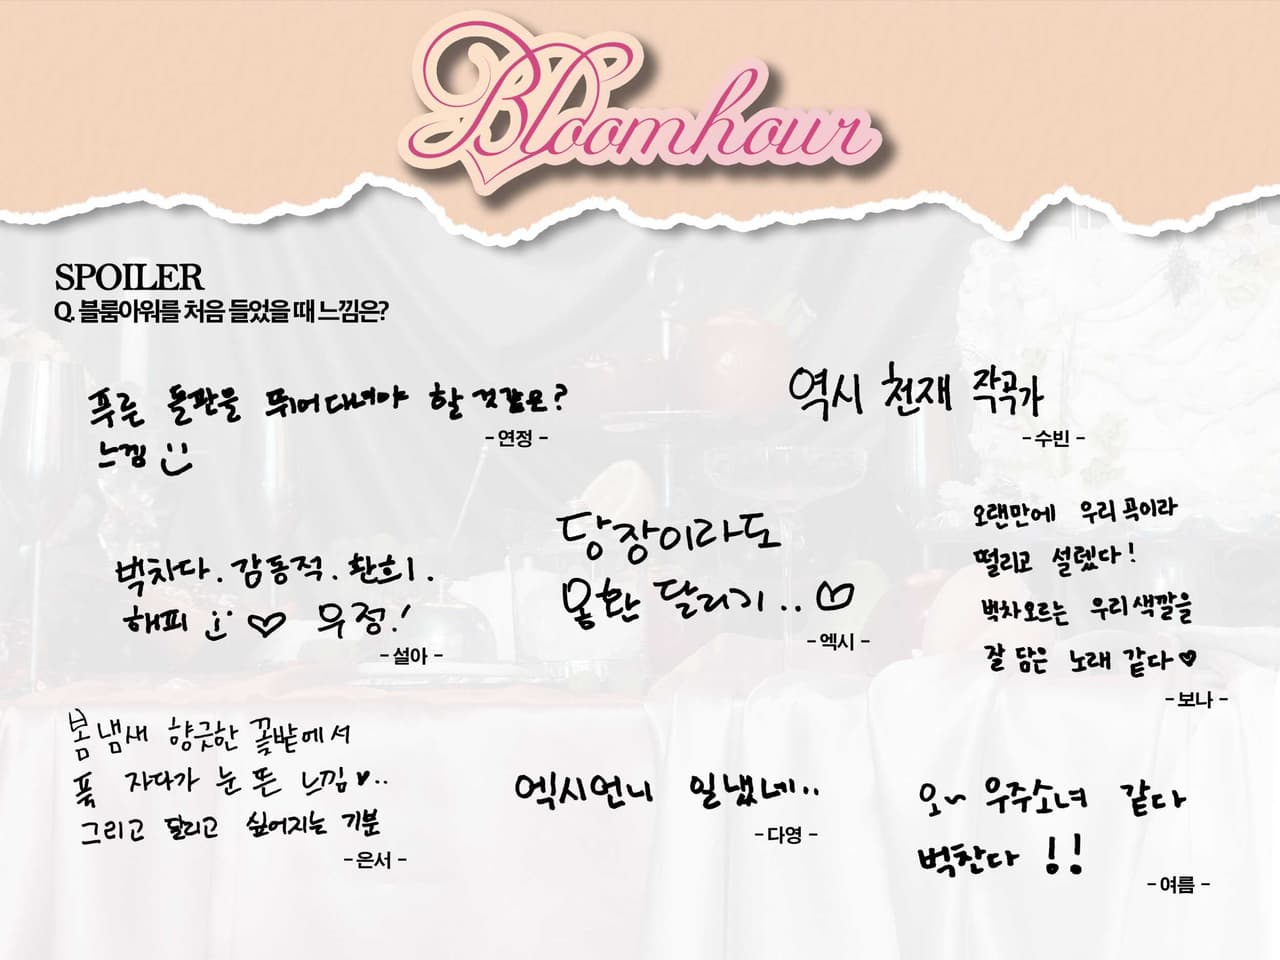 Bloomhour
SPOILER
Q. 블룸아워를 처음 들었을 때 느낌은?
푸른 들판을 뛰어다녀야 할 것같은?
느낌 :)
- 연정 -
역시 천재 작곡가
- 수빈 -
벅차다. 감동적. 환희.
해피 :) ♡ 우정!
- 설아 -
당장이라도
몽환 달리기.. ♡
- 엑시 -
오랜만에 우리 곡이라
떨리고 설렜다!
벅차오르는 우리 색깔을
잘 담은 노래 같다 ♥
- 보나 -
봄 냄새 향긋한 꽃밭에서
푹 자다가 눈 뜬 느낌 ♥..
그리고 달리고 싶어지는 기분
- 은서 -
엑시언니 일냈네..
- 다영 -
오~ 우주소녀 같다
벅찬다 !!
- 여름 -